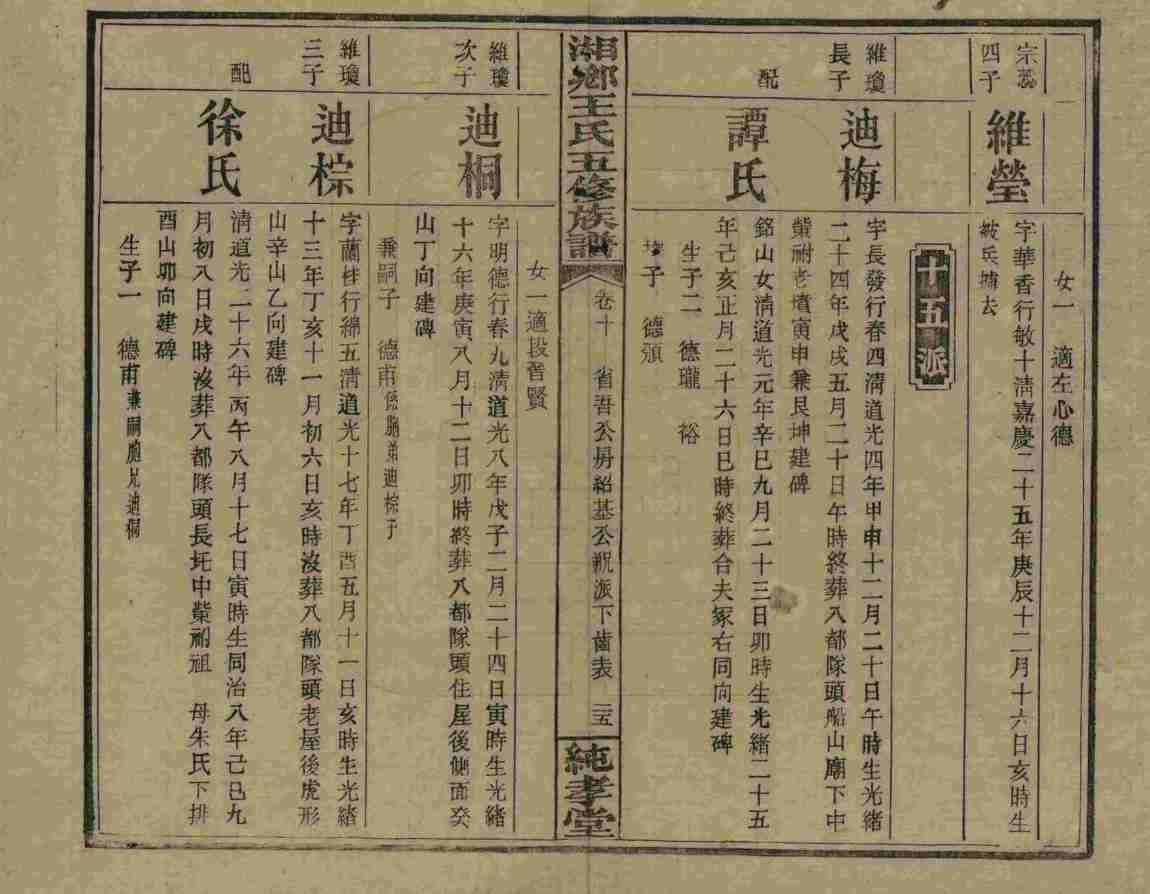 女一 適左心德
宗
四子
維瑩
字華香行敏十淸嘉慶二十五年庚辰十二月十六日亥時生
被兵擄去
十五派
維瓊
長子
迪梅
字長發行春四淸道光四年甲申十二月二十日午時生光緒
二十四年戊戌五月二十日午時終葬八都隊頭船山廟下中
塋祔老墳寅申兼艮坤建碑
配
譚氏
銘山女淸道光元年辛巳九月二十三日卯時生光緒二十五
年己亥正月二十六日巳時終葬合夫冢右同向建碑
生子二 德瓏 裕
子 德頒
湘鄉王氏五修族譜
卷十 省吾公房紹基公派下齒表 三五
純孝堂
女一適段晉賢
維瓊
次子
迪桐
字明德行春九淸道光八年戊子二月二十四日寅時生光緒
十六年庚寅八月十二日卯時終葬八都隊頭住屋後側面癸
山丁向建碑
兼嗣子 德甫係胞弟迪棕子
維瓊
三子
迪棕
字蘭桂行綿五淸道光十七年丁酉五月十一日亥時生光緒
十三年丁亥十一月初六日亥時沒葬八都隊頭老屋後虎形
山辛山乙向建碑
配
徐氏
淸道光二十六年丙午八月十七日寅時生同治八年己巳九
月初八日戌時沒葬八都隊頭長圫中塋祔祖 母朱氏下排
酉山卯向建碑
生子一 德甫兼嗣胞兄迪桐